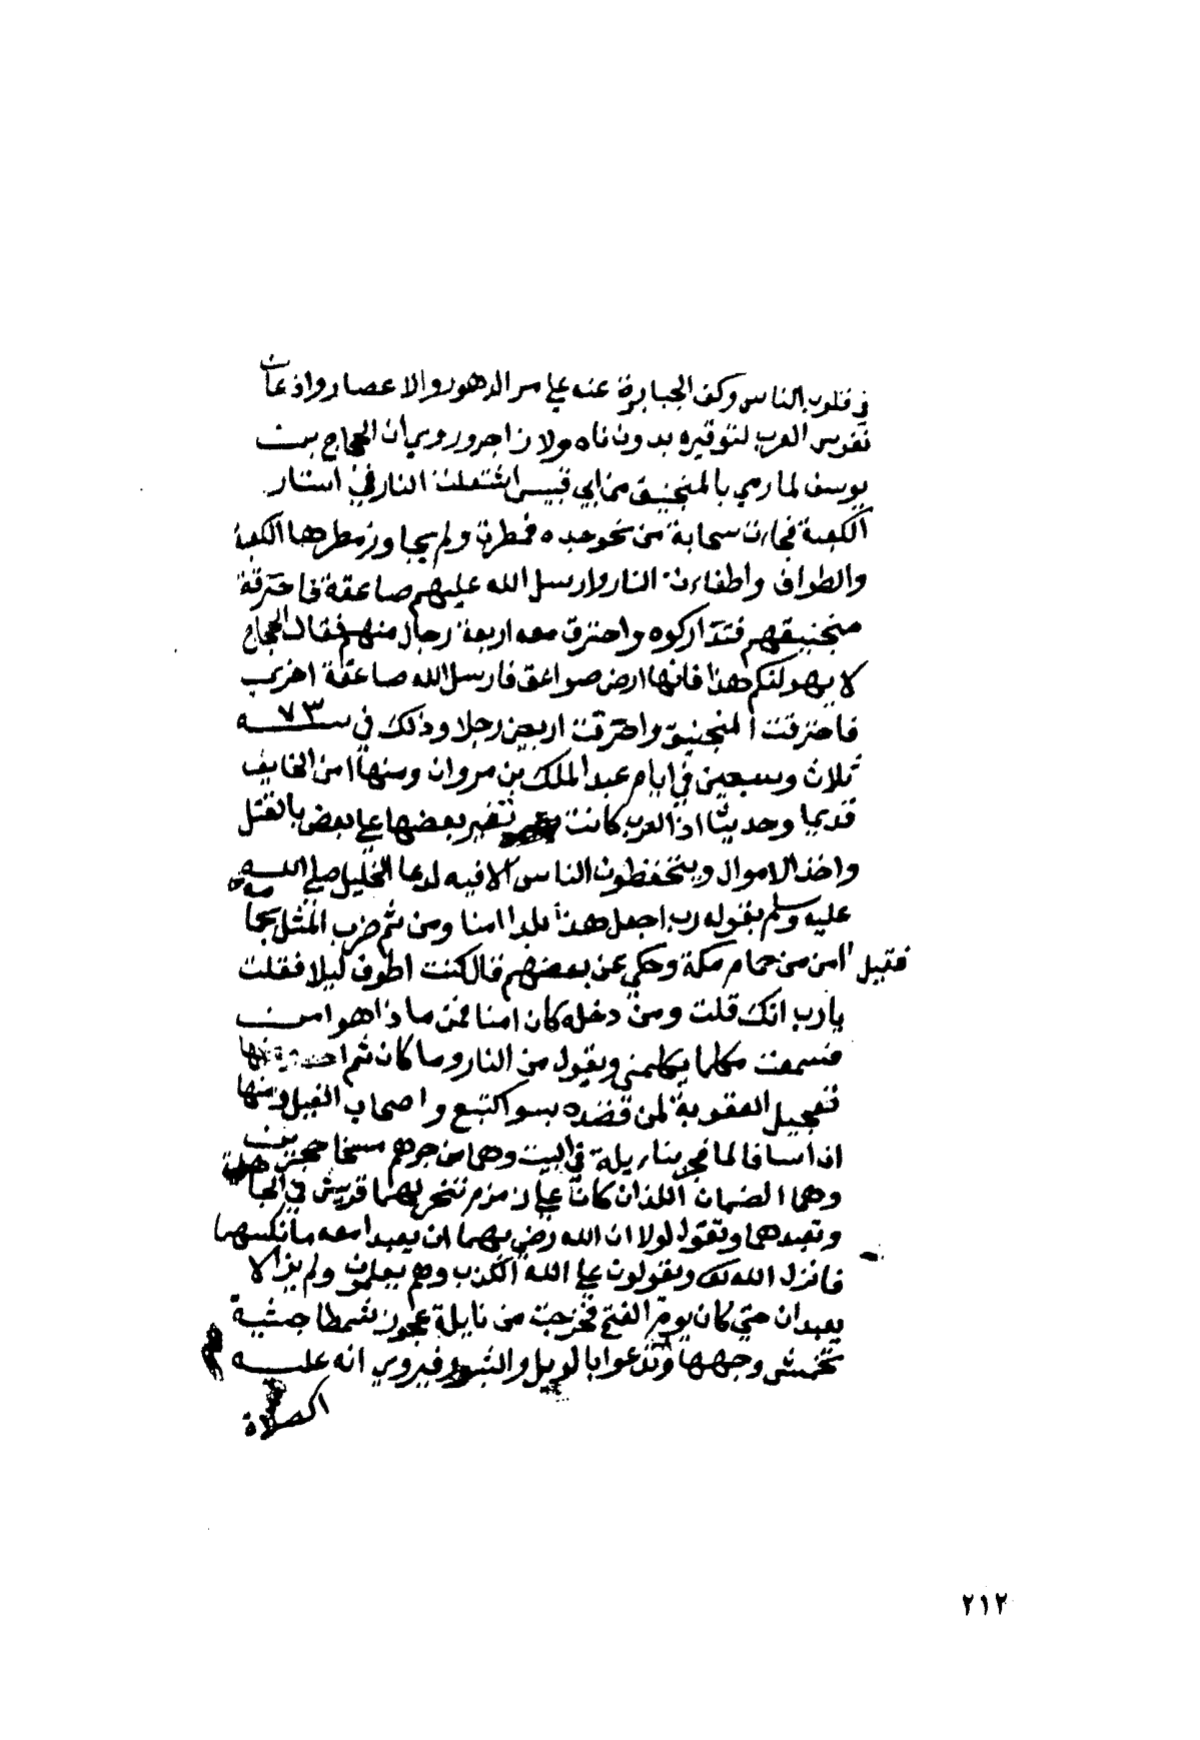 في قلوب الناس وكف الجبابرة عنه علي مر الدهور والاعصار واذعان
نفوس العرب لتوقيره بدون ناه ولا زاجر وروي ان الحجاج بن
يوسف لما رمي بالمنجنيق من ابي قبيس اشتعلت النار في استار
الكعبة فجاءت سحابة من نحو جده فمطرت ولم يجاوز مطرها الكعبة
والطواف واطفاءت النار وارسل الله عليهم صاعقة فاحترقة
منجنيقهم فتداركوه واحترق معه اربعة رجال منهم فقال الحجاج
لا يهولنكم هذا فانها ارض صواعق فارسل الله صاعقة اخري
فاحترقت المنجنيق واحرقت اربعين رجلا وذلك في سنه ٧٣
ثلاث وسبعين في ايام عبد الملك بن مروان ومنها امن الخايف
قديما وحديثا اذ العرب كانت تغير بعضها علي بعض بالقتل
واخذ الاموال ويتخطفون الناس الا فيه لدعا الخليل صلي الله
عليه وسلم بقوله رب اجعل هذا بلدا امنا ومن ثم ضرب المثل بحمامه
فقيل امن من حمام مكة وحكي عن بعضهم قال كنت اطوف ليلا فقلت
يا رب انك قلت ومن دخله كان امنا فمن ماذا هو امن
فسمعت مكلما يكلمني ويقول من النار وما كان ثم احد ومنها
تعجيل العقوبة لمن قصده بسو كتبع واصحاب الفيل ومنها
ان اسافا لما فجر بنايلة في البيت وهما من جرهم مسخا حجرين
وهما الصنمان اللذان كانا علي زمزم تنحر لهما قريش في الجاهلية
وتعبدهما وتقول لولا ان الله رضي بهما ان يعبدا معه ما نكسهما
فانزل الله تعالى ويقولون علي الله الكذب وهم يعلمون ولم يزالا
يعبدان حتي كان يوم الفتح فخرجت من نايلة عجوز شمطا حبشية
تخمش وجهها وتدعوا بالويل والثبور فيروي انه عليه
الصلاة
٢١٢